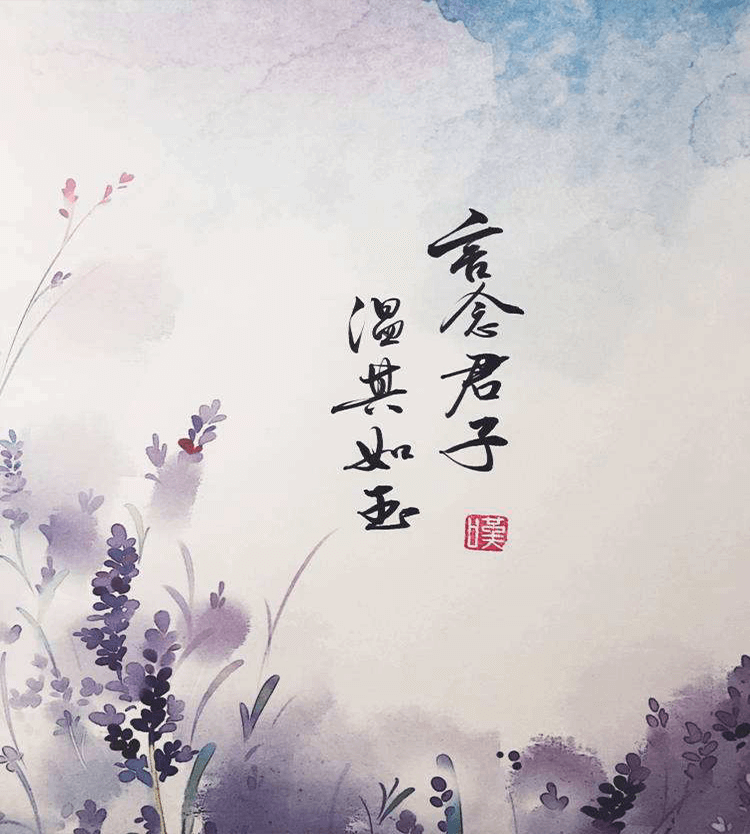 言念君子
温其如玉
暵